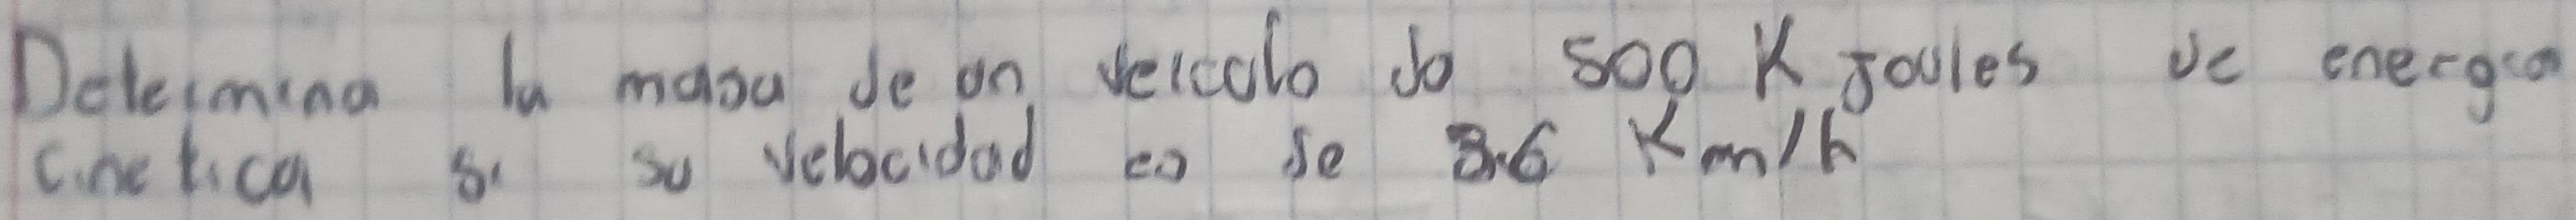 Determina la masa de un veiculo do 500 K Joules de energia
cinetica si su velocidad es de 36 Km/h